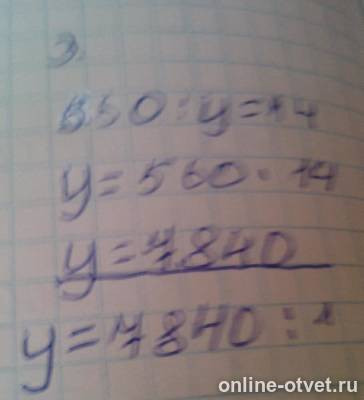 3.
560:y=14
y=560·14
y=7840
y=7840:1
online-otvet.ru